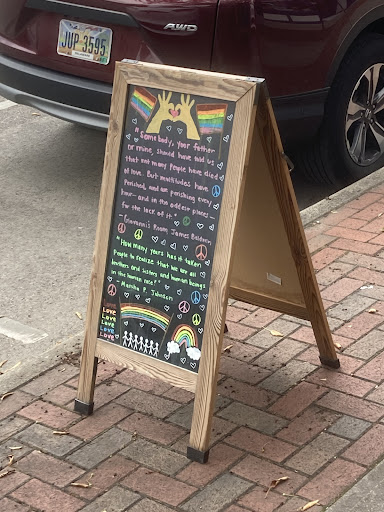 JUP 3595
AWD
"Somebody, your father
or mine, should have told us
that not many people have died
of love. But multitudes have
perished, and are perishing every
hour- and in the oddest places-
for the lack of it."
- Giovanni's Room James Baldwin
"How many years has it taken
people to realize that we are all
brothers and sisters and human beings
in the human race?"
- Marsha P. Johnson
Love
Love
Love
Love
Love